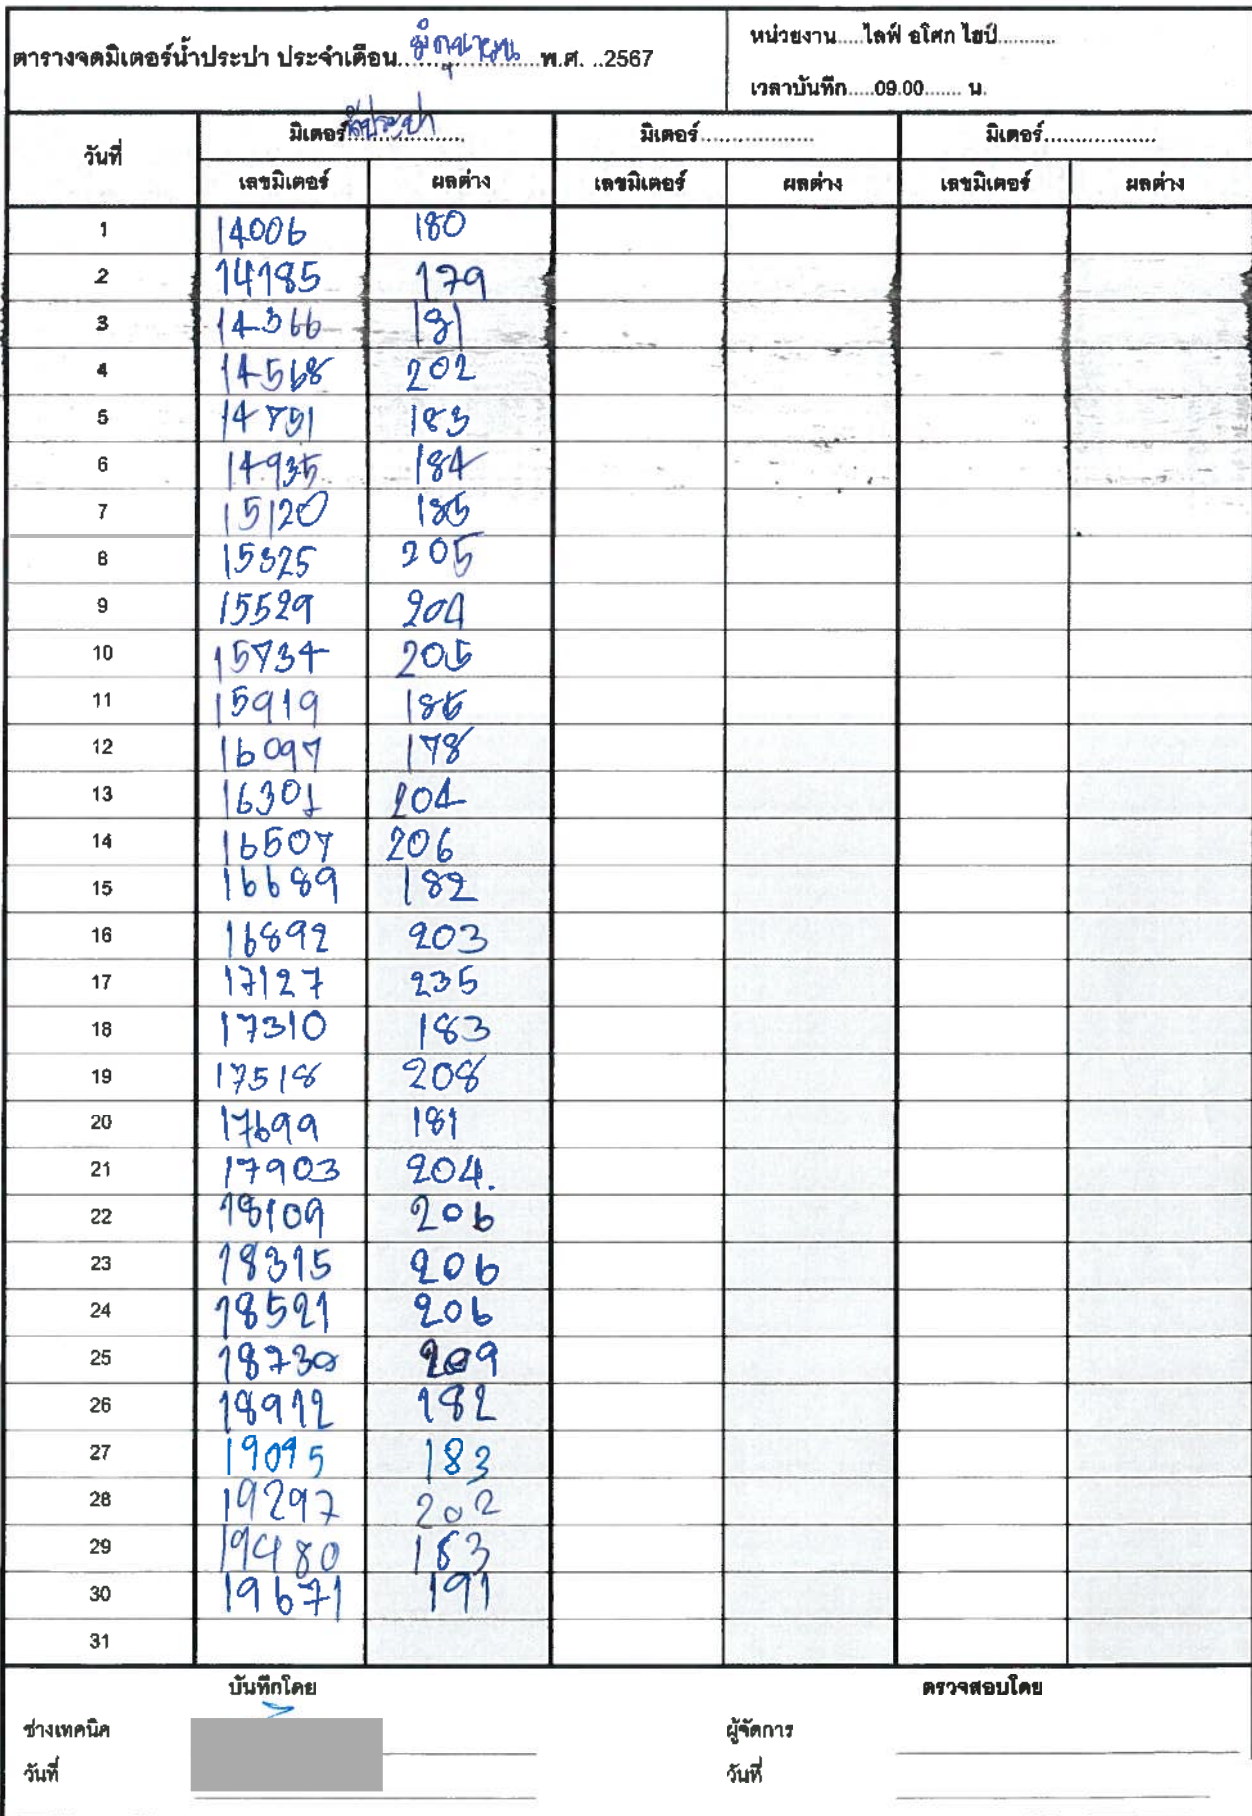 ตารางจดมิเตอร์น้ำประปา ประจำเดือน..มิถุนายน..พ.ศ. ..2567
หน่วยงาน.....ไลฟ์ อโศก ไฮป์...........
เวลาบันทึก.....09.00....... น.
วันที่ มิเตอร์น้ำประปา มิเตอร์................. มิเตอร์..................
เลขมิเตอร์ ผลต่าง เลขมิเตอร์ ผลต่าง เลขมิเตอร์ ผลต่าง
1 14006 180
2 14185 179
3 14366 181
4 14568 202
5 14751 183
6 14935 184
7 15120 185
8 15325 205
9 15529 204
10 15734 205
11 15919 185
12 16097 178
13 16301 204
14 16507 206
15 16689 182
16 16892 203
17 17127 235
18 17310 183
19 17518 208
20 17699 181
21 17903 204.
22 18109 206
23 18315 206
24 18521 206
25 18730 209
26 18912 182
27 19095 183
28 19297 202
29 19480 183
30 19671 191
31
บันทึกโดย ตรวจสอบโดย
ช่างเทคนิค ผู้จัดการ
วันที่ วันที่